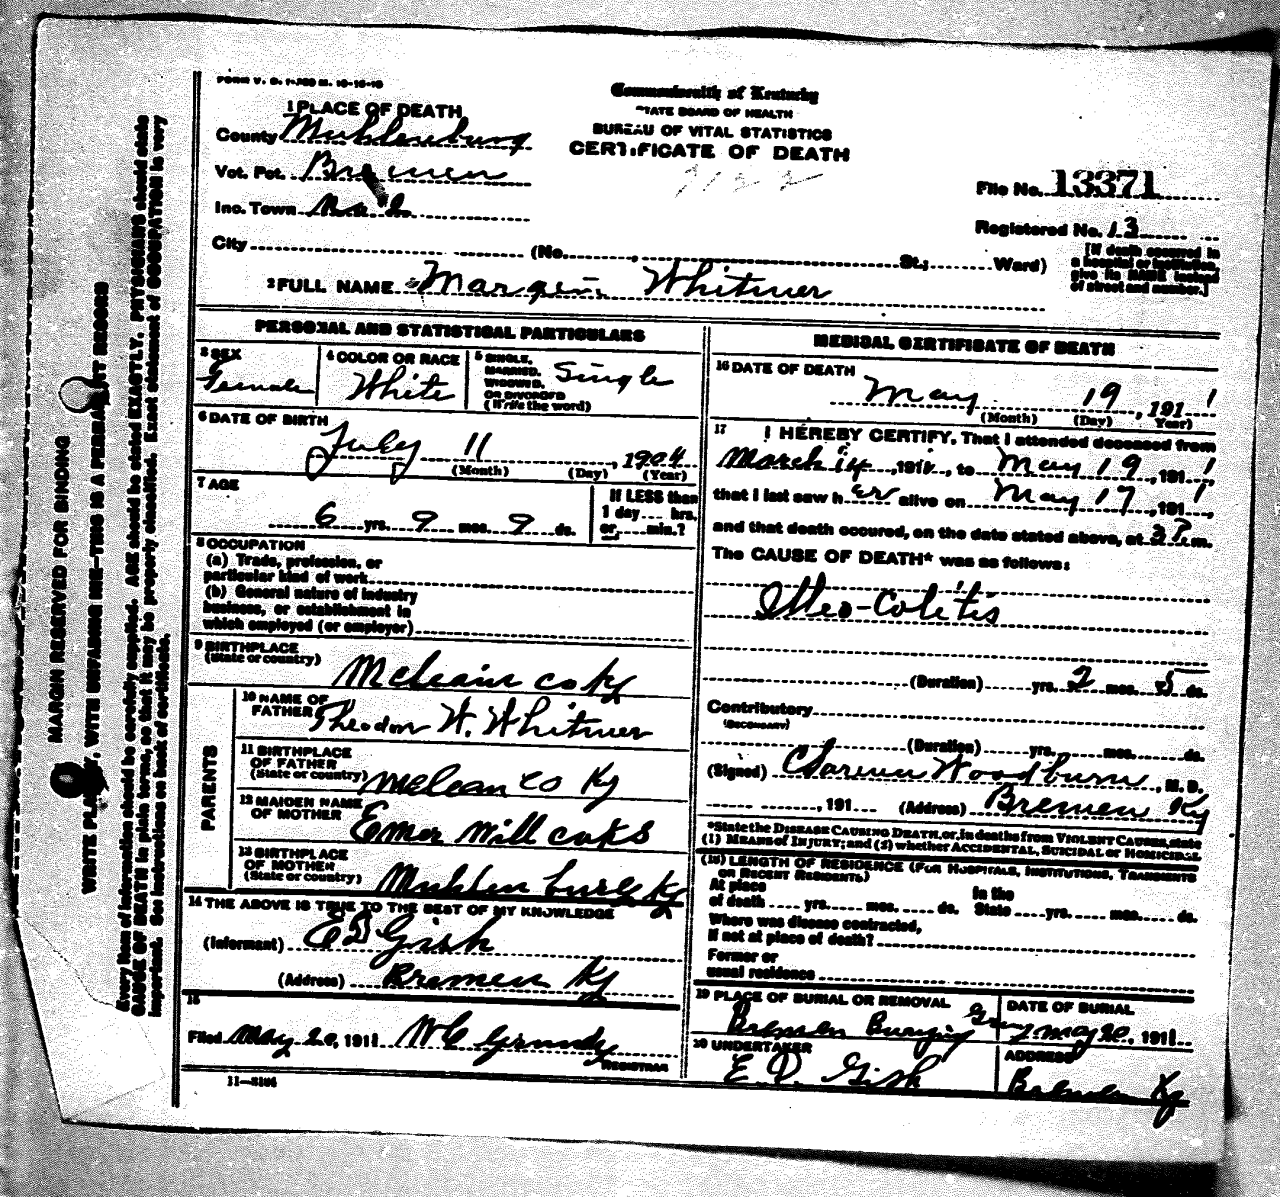 FORM V. S. 1-A
1 PLACE OF DEATH
County Muhlenburg
Vot. Pct. Bremen
Inc. Town No 2
City (No. , St.; Ward)
Commonwealth of Kentucky
STATE BOARD OF HEALTH
BUREAU OF VITAL STATISTICS
CERTIFICATE OF DEATH
File No. 13371
Registered No. 13
[If death occurred in
a hospital or institution,
give its NAME instead
of street and number.]
2 FULL NAME Whitmer
PERSONAL AND STATISTICAL PARTICULARS
3 SEX
Female
4 COLOR OR RACE
White
5 SINGLE,
MARRIED,
WIDOWED,
OR DIVORCED
(Write the word)
Single
6 DATE OF BIRTH
July 11, 1904
(Month) (Day) (Year)
7 AGE
6 yrs. 9 mos. 9 ds.
If LESS than
1 day hrs.
or min.?
8 OCCUPATION
(a) Trade, profession, or
particular kind of work
(b) General nature of industry
business, or establishment in
which employed (or employer)
9 BIRTHPLACE
(State or country)
Mclean co Ky
PARENTS
10 NAME OF
FATHER Theodor W. Whitmer
11 BIRTHPLACE
OF FATHER
(State or country) Mclean co Ky
12 MAIDEN NAME
OF MOTHER Emer Willcoks
13 BIRTHPLACE
OF MOTHER
(State or country) Muhlenburg Ky
14 THE ABOVE IS TRUE TO THE BEST OF MY KNOWLEDGE
(Informant) E D Gish
(Address) Bremen Ky
15
Filed May 20, 1911 W C Grundy
REGISTRAR
11—5104
MEDICAL CERTIFICATE OF DEATH
16 DATE OF DEATH
May 19, 1911
(Month) (Day) Year)
17 I HEREBY CERTIFY, That I attended deceased from
March 14, 1911, to May 19, 1911,
that I last saw her alive on May 17, 1911,
and that death occured, on the date stated above, at 3 P. m.
The CAUSE OF DEATH* was as follows:
Illeo-Colitis
(Duration) yrs. 2 mos. 5 ds.
Contributory
(SECONDARY)
(Duration) yrs. mos. ds.
(Signed) Woodburn, M. D.
, 191 (Address) Bremen Ky
*State the DISEASE CAUSING DEATH, or, in deaths from VIOLENT CAUSES, state
(1) MEANS OF INJURY; and (2) whether ACCIDENTAL, SUICIDAL or HOMICIDAL
(18) LENGTH OF RESIDENCE (FOR HOSPITALS, INSTITUTIONS, TRANSIENTS
OR RECENT RESIDENTS.)
At place
of death yrs. mos. ds.
In the
State yrs. mos. ds.
Where was disease contracted,
If not at place of death?
Former or
usual residence
19 PLACE OF BURIAL OR REMOVAL
Bremen Burying
DATE OF BURIAL
May 20, 1911
20 UNDERTAKER
E. D. Gish
ADDRESS
Bremen Ky
MARGIN RESERVED FOR BINDING
WRITE PLAINLY, WITH UNFADING INK—THIS IS A PERMANENT RECORD
Every item of information should be carefully supplied. AGE should be stated EXACTLY. PHYSICIANS should state
CAUSE OF DEATH in plain terms, so that it may be properly classified. Exact statement of OCCUPATION is very
important. See instructions on back of certificate.